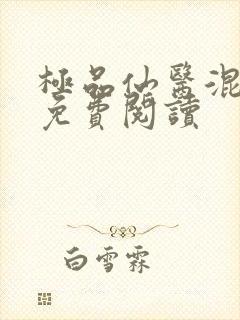 極品仙醫混
免費閱讀
白雪霖